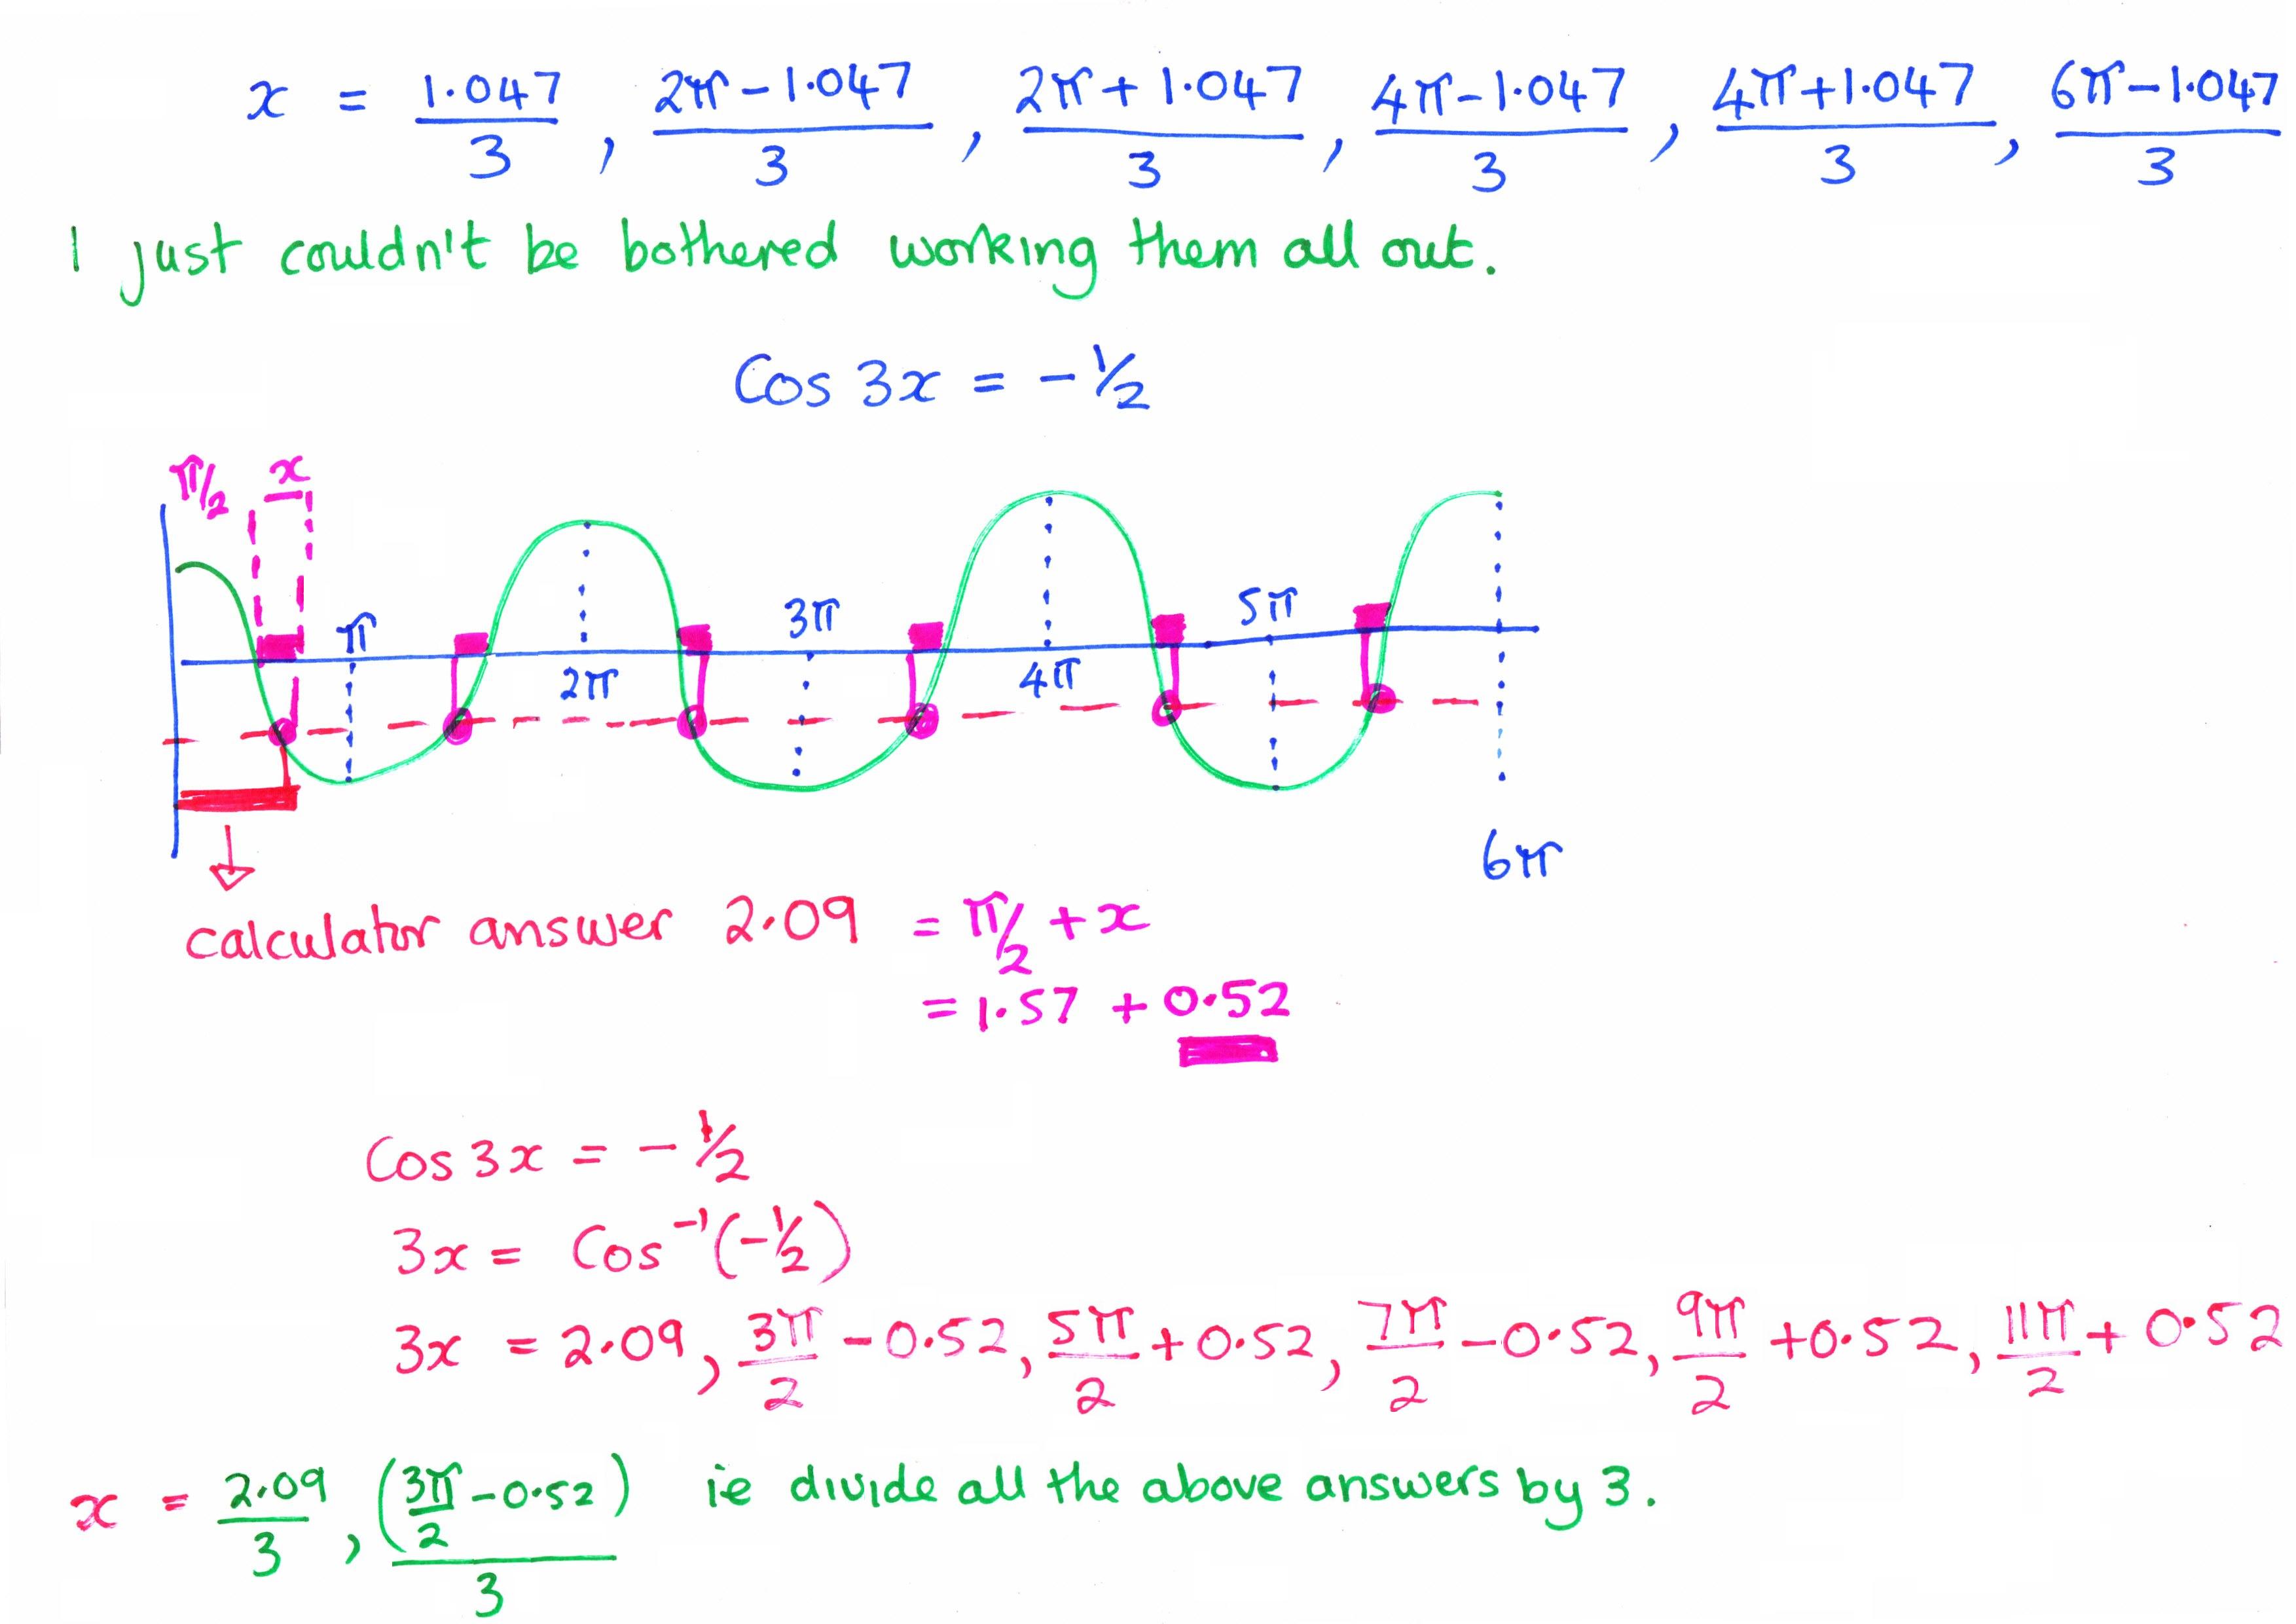 x = 1.047/3 , 2π-1.047/3 , 2π+1.047/3 , 4π-1.047/3 , 4π+1.047/3 , 6π-1.047/3
I just couldn't be bothered working them all out.
Cos 3x = -1/2
π/2 x
π 2π 3π 4π 5π 6π
calculator answer 2.09 = π/2 + x
= 1.57 + 0.52
Cos 3x = -1/2
3x = Cos⁻¹(-1/2)
3x = 2.09, 3π/2 - 0.52, 5π/2 + 0.52, 7π/2 - 0.52, 9π/2 + 0.52, 11π/2 + 0.52
x = 2.09/3 , (3π/2 - 0.52)/3 ie divide all the above answers by 3.